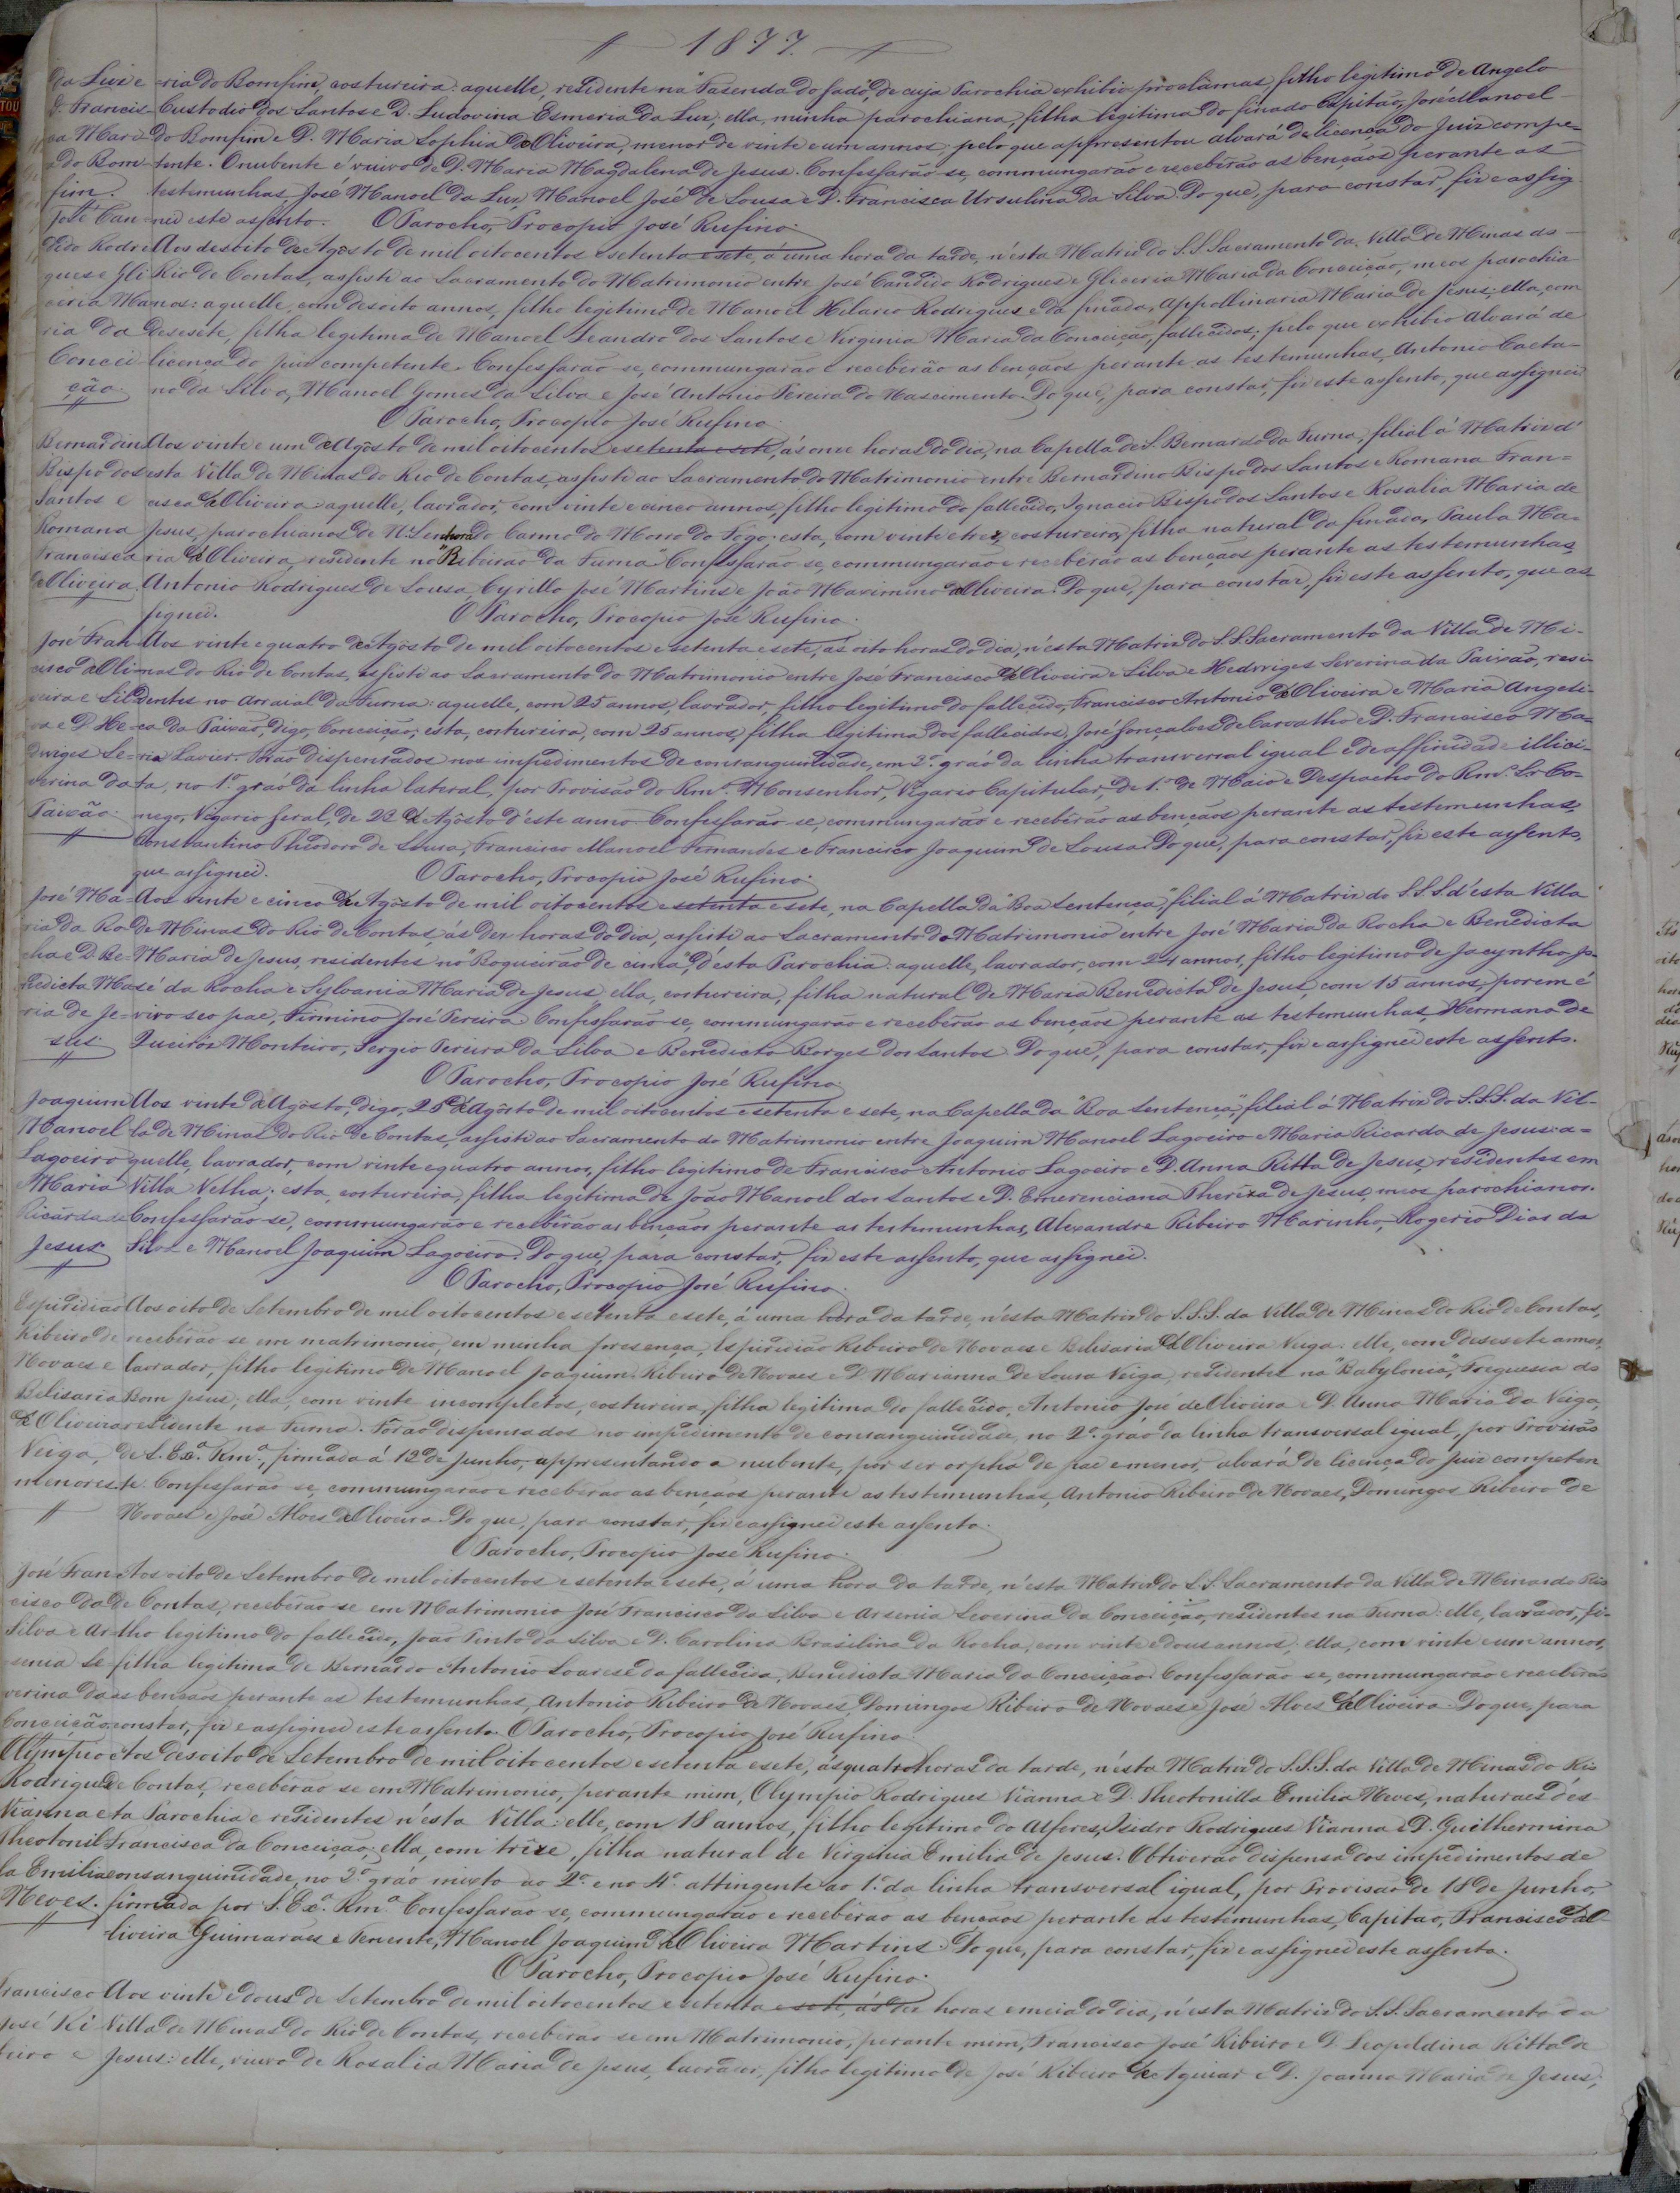 1877.
da Luz e ria do Bomfim, costureira: aquelle, residente na Fasenda do Gado, de cuja Parochia exhibio proclamas, filho legitimo de Angelo
D. Francis- Custodio dos Santos e D. Ludovina Esmeria da Luz, ella, minha parochiana, filha legitima do finado Capitão, José Manoel
ca Mari- do Bomfim e D. Maria Sophia de Oliveira, menor de vinte e um annos: pelo que appresentou alvará de licença do Juiz compe-
a do Bom- tente. O nubente é viuvo de D. Maria Magdalena de Jesus. Confessarão-se, commungarão e receberão as benções perante as
fim. testemunhas, José Manoel da Luz, Manoel José de Sousa e D. Francisca Ursulina da Silva. Do que, para constar, fiz e assig-
José Can- nei este assento. O Parocho, Procopio José Rufino.
dido Rodri- Aos desoito de Agôsto de mil oitocentos e setenta e sete, á uma hora da tarde, n'esta Matriz do S.S. Sacramento da Villa de Minas do
gues e Gli- Rio de Contas, assisti ao Sacramento do Matrimonio entre José Candido Rodrigues e Gliceria Maria da Conceição, meos parochia-
ceria Ma- nos: aquelle, com desoito annos, filho legitimo de Manoel Hilario Rodrigues e da finada, Appollinaria Maria de Jesus; ella, com
ria da desesete, filha legitima de Manoel Leandro dos Santos e Virginia Maria da Conceição, fallecidos; pelo que exhibio Alvará de
Concei- licença do juiz competente. Confessarão-se, commungarão e receberão as benções perante as testemunhas, Antonio Caeta-
ção. no da Silva, Manoel Gomes da Silva e José Antonio Pereira do Nascimento. Do que, para constar, fiz este assento, que assignei
O Parocho, Procopio José Rufino.
Bernardino Aos vinte e um de Agôsto de mil oitocentos e setenta e sete, ás onze horas do dia, na Capella de S. Bernardo da Furna, filial á Matriz d'
Bispo dos esta Villa de Minas do Rio de Contas, assisti ao Sacramento do Matrimonio entre Bernardino Bispo dos Santos e Romana Fran-
Santos e cisca de Oliveira: aquelle, lavrador, com vinte e cinco annos, filho legitimo do fallecido, Ignacio Bispo dos Santos e Rosalia Maria de
Romana Jesus, parochianos de N. Senhora do Carmo do Morro do Fogo; esta, com vinte e tres, costureira, filha natural da finada, Paula Ma-
Francisca ria de Oliveira, residente no "Ribeirão da Furna". Confessarão-se, commungarão e receberão as benções perante as testemunhas,
de Oliveira. Antonio Rodrigues de Sousa, Cyrillo José Martins e João Maximino de Oliveira. Do que, para constar, fiz este assento, que as-
signei. O Parocho, Procopio José Rufino.
José Fran- Aos vinte e quatro de Agôsto de mil oitocentos e setenta e sete, ás oito horas do dia, n'esta Matriz do S.S. Sacramento da Villa de Mi-
cisco de Oli- nas do Rio de Contas, assisti ao Sacramento do Matrimonio entre José Francisco de Oliveira e Silva e Hedwiges Severina da Paixão, resi-
veira e Sil- dentes no Arraial da Furna: aquelle, com 25 annos, lavrador, filho legitimo do fallecido, Francisco Antonio de Oliveira e Maria Angeli-
va e D. He- ca da Paixão, digo, Conceição; esta, costureira, com 25 annos, filha legitima dos fallecidos, José Gonçalves de Carvalho e D. Francisca Ma-
dwiges Se- ria Xavier. Forão dispensados nos impedimentos de consanguinidade, em 2º. gráo da linha transversal igual e de affinidade illici-
verina da ta, no 1º. gráo da linha lateral, por Provisão do Rmº. Monsenhor, Vigario Capitular, de 1º. de Maio e Despacho do Rmº. Sr. Co-
Paixão. nego, Vigario Geral, de 23 de Agôsto d'este anno. Confessarão-se, commungarão e receberão as benções perante as testemunhas,
Constantino Theodoro de Sousa, Francisco Manoel Fernandes e Francisco Joaquim de Sousa. Do que, para constar, fiz este assento,
que assignei. O Parocho, Procopio José Rufino.
José Ma- Aos vinte e cinco de Agôsto de mil oitocentos e setenta e sete, na Capella da "Boa Sentença", filial á Matriz do S.S.S. d'esta Villa
ria da Ro- de Minas do Rio de Contas, ás dez horas do dia, assisti ao Sacramento do Matrimonio entre José Maria da Rocha e Benedicta
cha e D. Be- Maria de Jesus, residentes no "Boqueirão de cima", d'esta Parochia: aquelle, lavrador, com 24 annos, filho legitimo de Jacyntho Jo-
nedicta Ma- sé da Rocha e Sylvania Maria de Jesus; ella, costureira, filha natural de Maria Benedicta de Jesus, com 15 annos, porem é
ria de Je- vivo seo pae, Firmino José Pereira. Confessarão-se, commungarão e receberão as benções perante as testemunhas, Hermano de
sus. Queiróz Monteiro, Sergio Pereira da Silva e Benedicto Borges dos Santos. Do que, para constar, fiz e assignei este assento.
O Parocho, Procopio José Rufino.
Joaquim Aos vinte de Agôsto, digo, 25 de Agôsto de mil oitocentos e setenta e sete, na Capella da "Boa Sentença", filial á Matriz do S.S.S. da Vil-
Manoel la de Minas do Rio de Contas, assisti ao Sacramento do Matrimonio entre Joaquim Manoel Lagoeiro e Maria Ricarda de Jesus: a-
Lagoeiro quelle, lavrador, com vinte e quatro annos, filho legitimo de Francisco Antonio Lagoeiro e D. Anna Ritta de Jesus, residentes em
Maria Villa Velha; esta, costureira, filha legitima de João Manoel dos Santos e D. Emerenciana Thereza de Jesus, meos parochianos.
Ricarda de Confessarão-se, commungarão e receberão as benções perante as testemunhas, Alexandre Ribeiro Marinho, Rogerio Dias da
Jesus Silva e Manoel Joaquim Lagoeiro. Do que, para constar, fiz este assento, que assignei.
O Parocho, Procopio José Rufino.
Espiridião Aos oito de Setembro de mil oitocentos e setenta e sete, á uma hora da tarde, n'esta Matriz do S.S.S. da Villa de Minas do Rio de Contas,
Ribeiro de receberão-se em matrimonio, em minha presença, Espiridião Ribeiro de Novaes e Belisaria de Oliveira Veiga: elle, com desesete annos,
Novaes e lavrador, filho legitimo de Manoel Joaquim Ribeiro de Novaes e D. Marianna de Sousa Veiga, residentes na "Babylonia", Freguesia do
Belisaria Bom Jesus; ella, com vinte incompletos, costureira, filha legitima do fallecido, Antonio José de Oliveira e D. Anna Maria da Veiga,
de Oliveira residente na Furna. Forão dispensados no impedimento de consanguinidade, no 2º. gráo da linha transversal igual, por Provisão
Veiga, de S. Exª. Rmª., firmada á 12 de Junho, appresentando a nubente, por ser orphã de pae e menor, alvará de licença do juiz competen
menores. te. Confessarão-se, commungarão e receberão as benções perante as testemunhas, Antonio Ribeiro de Novaes, Domingos Ribeiro de
Novaes e José Alves de Oliveira. Do que, para constar, fiz e assignei este assento.
O Parocho, Procopio José Rufino.
José Fran- Aos oito de Setembro de mil oitocentos e setenta e sete, á uma hora da tarde, n'esta Matriz do S.S. Sacramento da Villa de Minas do Rio
cisco da de Contas, receberão-se em Matrimonio José Francisco da Silva e Arsenia Severina da Conceição, residentes na Furna: elle, lavrador, fi-
Silva e Ar- lho legitimo do fallecido, João Pinto da Silva e D. Carolina Brasilina da Rocha, com vinte e dous annos; ella, com vinte e um annos,
senia Se- filha legitima de Bernardo Antonio Soares e da fallecida, Benedicta Maria da Conceição. Confessarão-se, commungarão e receberão
verina da as benções perante as testemunhas, Antonio Ribeiro de Novaes, Domingos Ribeiro de Novaes e José Alves de Oliveira. Do que, para
Conceição. constar, fiz e assignei este assento. O Parocho, Procopio José Rufino.
Olympio Aos desoito de Setembro de mil oitocentos e setenta e sete, ás quatro horas da tarde, n'esta Matriz do S.S.S. da Villa de Minas do Rio
Rodrigues de Contas, receberão-se em Matrimonio, perante mim, Olympio Rodrigues Vianna e D. Theotonilla Emilia Neves, naturaes d'es-
Vianna e ta Parochia e residentes n'esta Villa: elle, com 18 annos, filho legitimo do Alferes, Isidro Rodrigues Vianna e D. Guilhermina
Theotonil- Francisca da Conceição; ella, com trêze, filha natural de Virginia Emilia de Jesus. Obtiverão dispensa dos impedimentos de
la Emilia consanguinidade, no 2º. gráo mixto ao 2º. e no 4º. attingente ao 1º. da linha transversal igual, por Provisão de 18 de Junho,
Neves. firmada por S. Exª. Rmª. Confessarão-se, commungarão e receberão as benções perante as testemunhas, Capitão, Francisco d'O-
liveira Guimarães e Tenente, Manoel Joaquim de Oliveira Martins. Do que, para constar, fiz e assignei este assento.
O Parocho, Procopio José Rufino.
Francisco Aos vinte e dous de Setembro de mil oitocentos e setenta e sete, ás dez horas e meia do dia, n'esta Matriz do S.S. Sacramento da
José Ri- Villa de Minas do Rio de Contas, receberão-se em Matrimonio, perante mim, Francisco José Ribeiro e D. Leopoldina Ritta de
beiro e Jesus: elle, viuvo de Rosalia Maria de Jesus, lavrador, filho legitimo de José Ribeiro de Aguiar e D. Joanna Maria de Jesus;